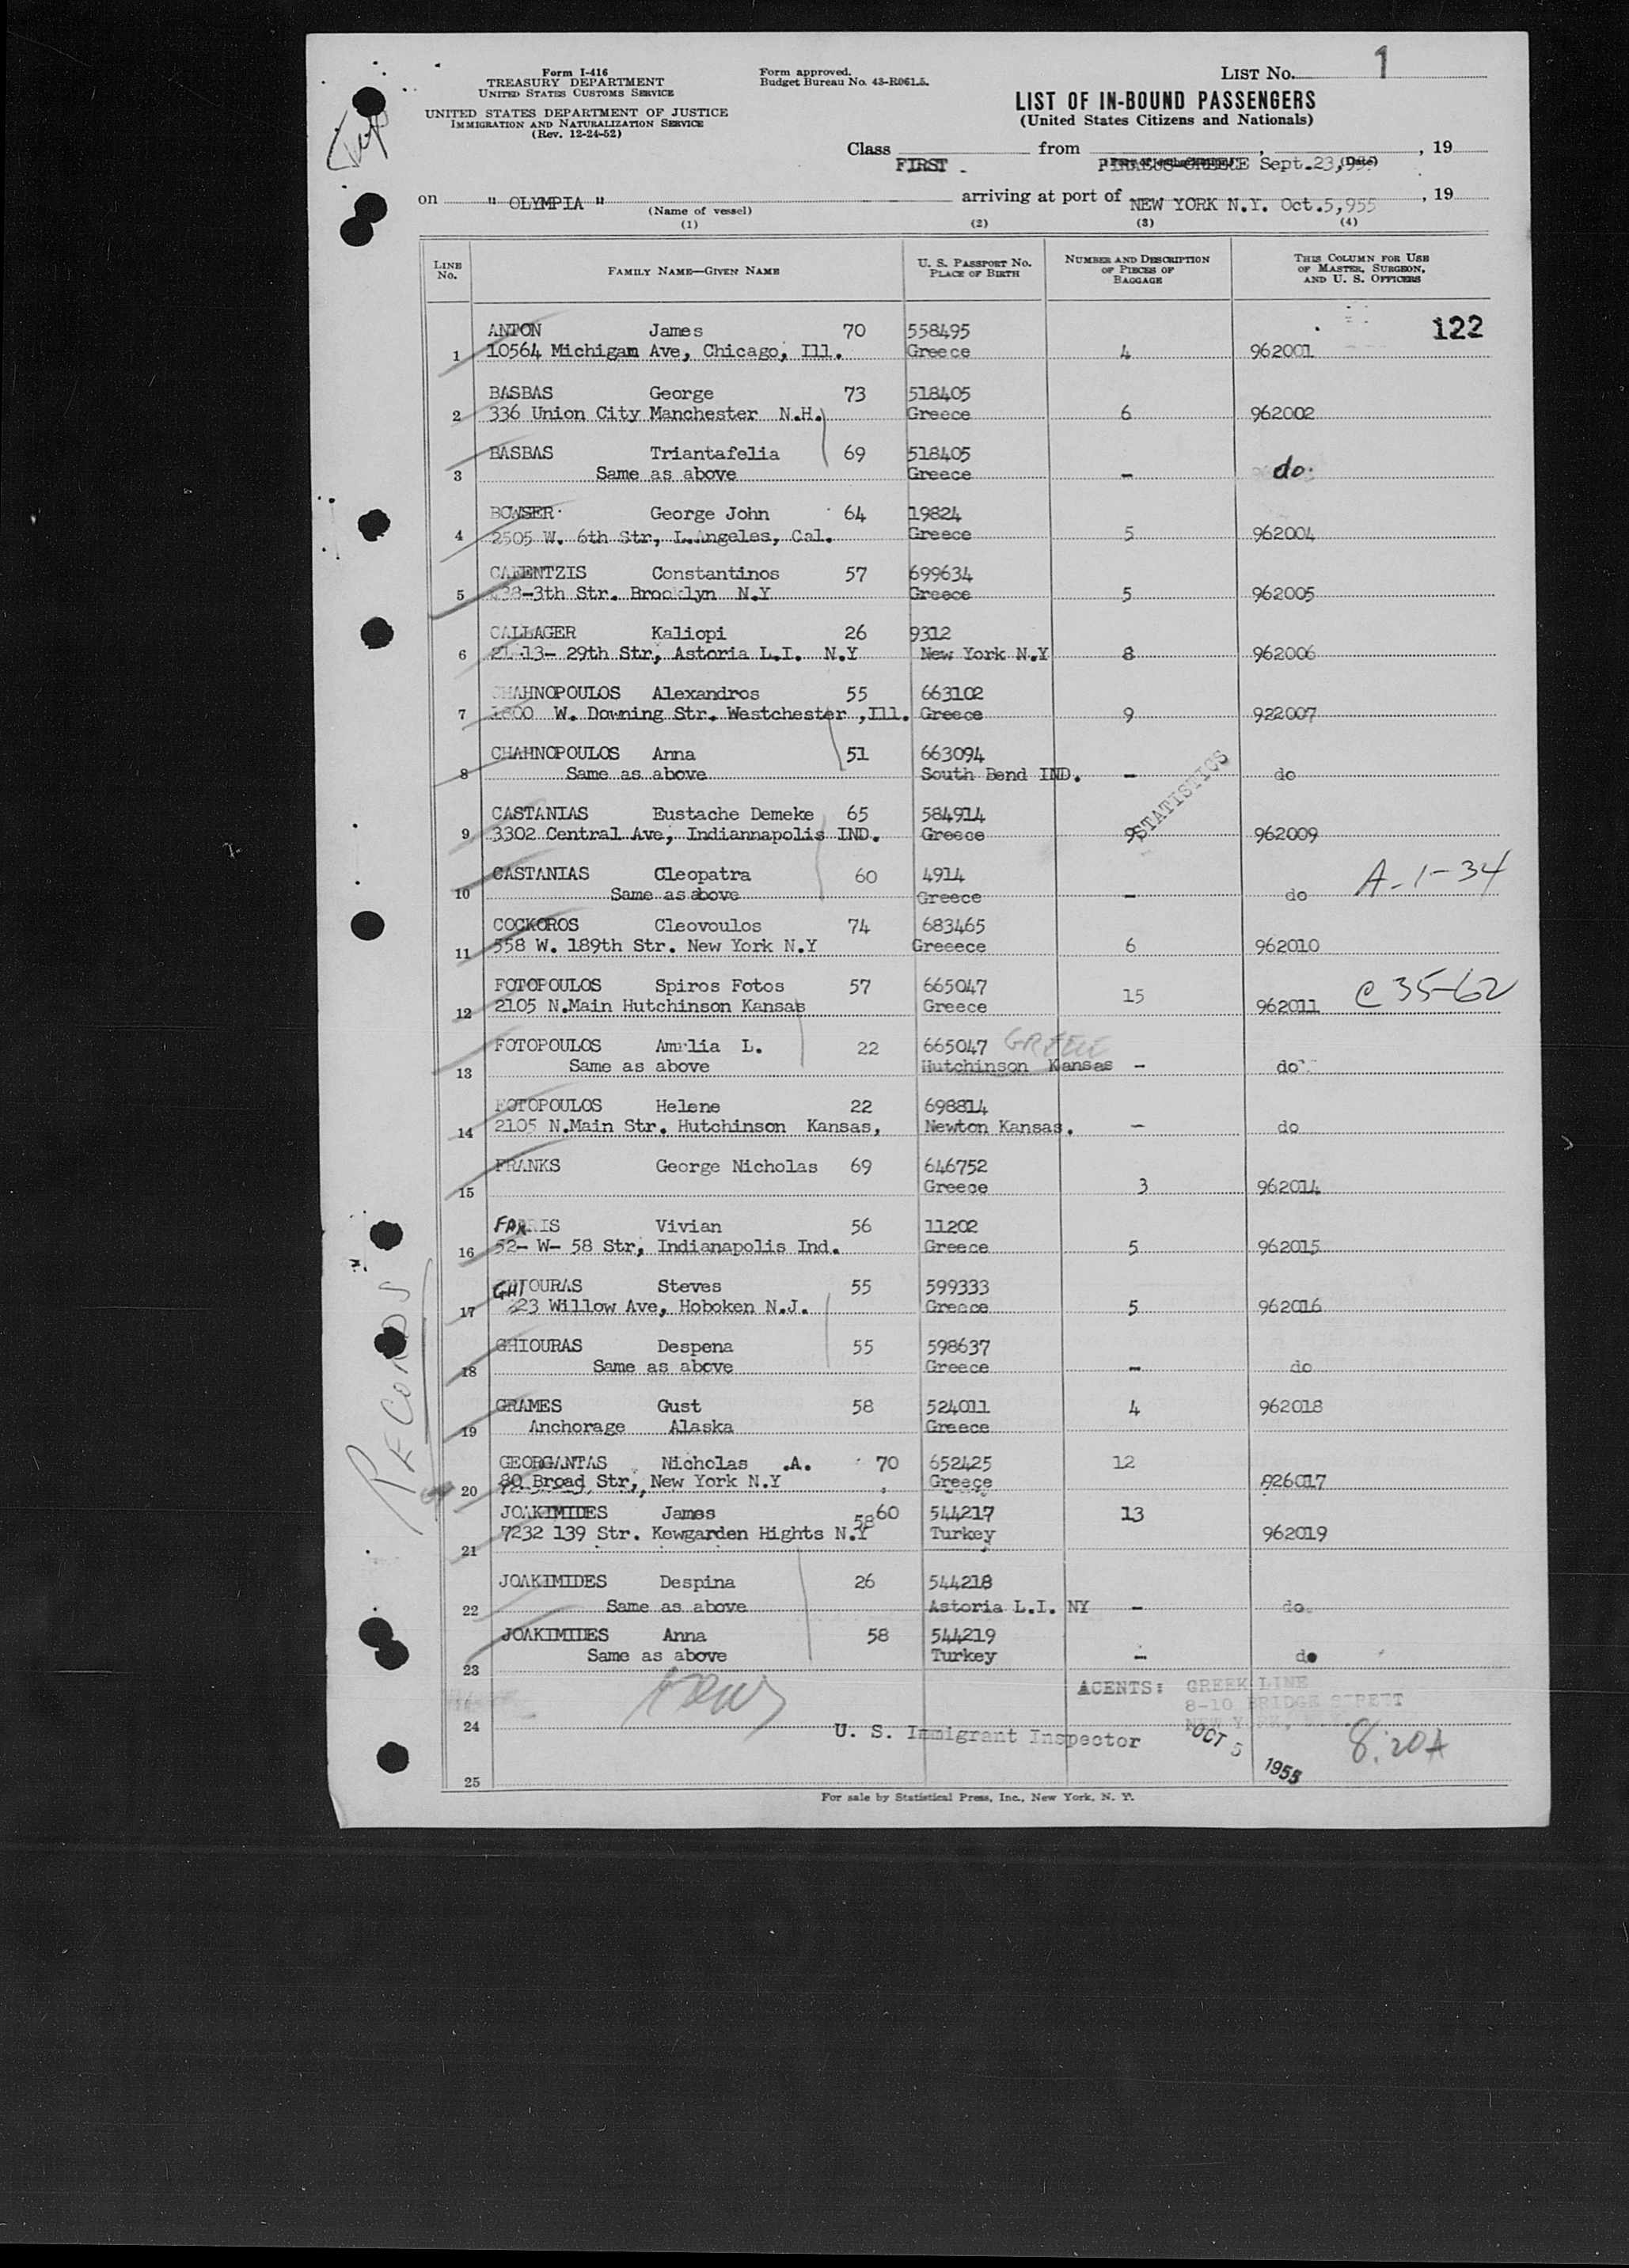 Form I-416
TREASURY DEPARTMENT
UNITED STATES CUSTOMS SERVICE
UNITED STATES DEPARTMENT OF JUSTICE
IMMIGRATION AND NATURALIZATION SERVICE
(Rev. 12-24-52)
Form approved.
Budget Bureau No. 43-R061.5.
LIST No. 1
LIST OF IN-BOUND PASSENGERS
(United States Citizens and Nationals)
Class FIRST . from PIRAEUS GREECE Sept.23,955 (Date) , 19
on " OLYMPIA " arriving at port of NEW YORK N.Y. Oct.5,955 , 19
(Name of vessel)
(1) (2) (3) (4)
LINE No. FAMILY NAME—GIVEN NAME U. S. PASSPORT No. PLACE OF BIRTH NUMBER AND DESCRIPTION OF PIECES OF BAGGAGE THIS COLUMN FOR USE OF MASTER, SURGEON, AND U. S. OFFICERS
122
ANTON James 70 558495
1 10564 Michigam Ave, Chicago, Ill. Greece 4 962001
BASBAS George 73 518405
2 336 Union City Manchester N.H. Greece 6 962002
BASBAS Triantafelia 69 518405
3 Same as above Greece - do.
BOWSER George John 64 19824
4 2505 W. 6th Str, L.Angeles, Cal. Greece 5 962004
Constantinos 57 699634
5 38-3th Str. Brooklyn N.Y Greece 5 962005
CALLAGER Kaliopi 26 9312
6 21-13- 29th Str, Astoria L.I. N.Y New York N.Y 8 962006
CHAHNOPOULOS Alexandros 55 663102
7 W. Downing Str. Westchester ,Ill. Greece 9 922007
CHAHNOPOULOS Anna 51 663094
8 Same as above South Bend IND. - do
STATISTICS
CASTANIAS Eustache Demeke 65 584914
9 3302 Central Ave, Indiannapolis IND. Greece 9 962009
CASTANIAS Cleopatra 60 4914
10 Same as above Greece - do A-1-34
COCKOROS Cleovoulos 74 683465
11 558 W. 189th Str. New York N.Y Greeece 6 962010
FOTOPOULOS Spiros Fotos 57 665047 15
12 2105 N.Main Hutchinson Kansas Greece 962011 C 35-62
FOTOPOULOS Amelia L. 22 665047 GREECE
13 Same as above Hutchinson Kansas - do
FOTOPOULOS Helene 22 698814
14 2105 N.Main Str. Hutchinson Kansas, Newton Kansas. - do
FRANKS George Nicholas 69 646752
15 Greece 3 962014
FARRIS Vivian 56 11202
16 52- W- 58 Str, Indianapolis Ind. Greece 5 962015
GHIOURAS Steves 55 599333
17 223 Willow Ave, Hoboken N.J. Greece 5 962016
GHIOURAS Despena 55 598637
18 Same as above Greece - do
GRAMES Gust 58 524011 4 962018
19 Anchorage Alaska Greece
GEORGANTAS Nicholas .A. 70 652425 12
20 80 Broad Str,, New York N.Y Greece 926017
JOAKIMIDES James 58 60 544217 13
7232 139 Str. Kewgarden Hights N.Y Turkey 962019
21
JOAKIMIDES Despina 26 544218
22 Same as above Astoria L.I. NY - do
JOAKIMIDES Anna 58 544219
Same as above Turkey - do
23
RECORDS
AGENTS: GREEK LINE
8-10 BRIDGE STREET
NEW YORK, N.Y.
24 U. S. Immigrant Inspector OCT 5 1955 8:20A
25
For sale by Statistical Press, Inc., New York, N. Y.